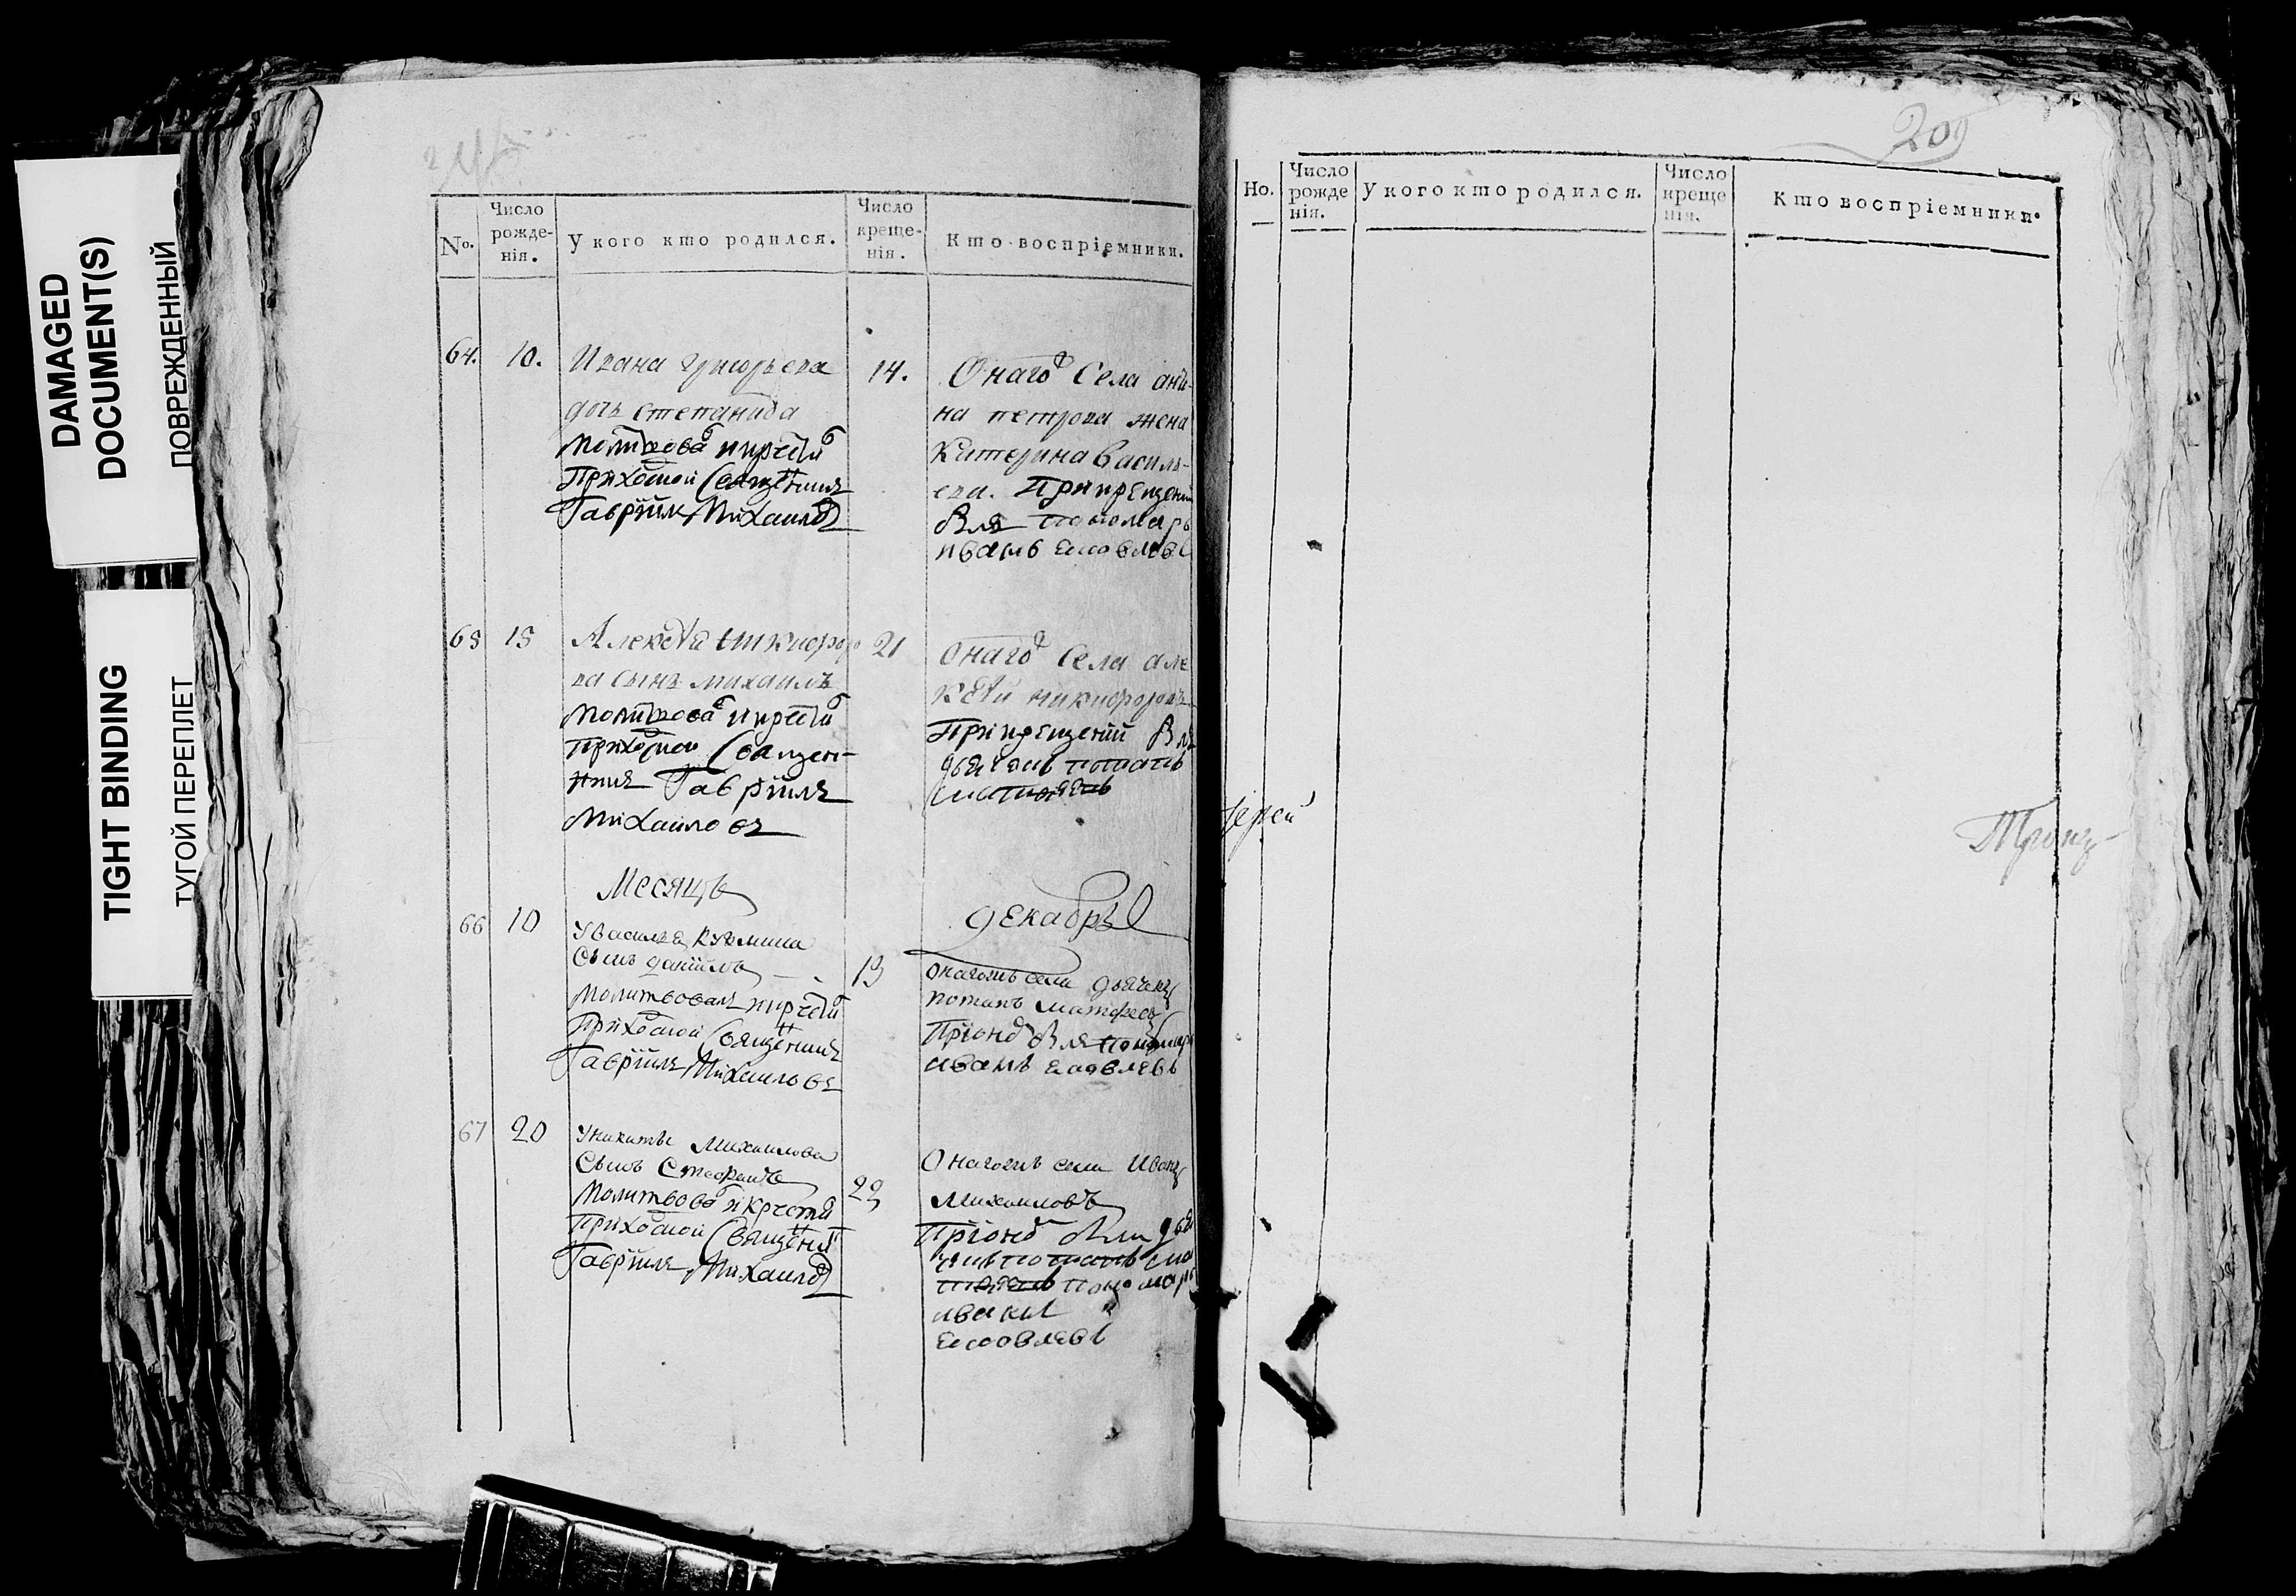 DAMAGED
DOCUMENT(S)
ПОВРЕЖДЕННЫЙ
TIGHT BINDING
ТУГОЙ ПЕРЕПЛЕТ
No.
Число рожденія.
У кого кто родился.
Число крещенія.
Кто воспріемники.
64. 10.
Ивана григорьева
дочь степанида
Молитвова и крести
Приходской Священник
Гавріил Михаилов
14.
Онаго села
на петрова жена
Катерина Василь-
ева. При крещеніи
был пономарь
иванъ еаковлевъ
65 15
Алексѣя никифоро
ва сынъ михаилъ
Молитвова и крести
Приходской Священ-
ник Гавріил
Михаиловъ
21
онаго села але
ксѣй никифоровъ
При крещеніи был
дьячекъ потапъ
Месяцъ
декабрь
66 10
У василья кузмина
сынъ даніилъ
Молитвовалъ и крести
Приходской Священник
Гавріилъ Михаиловъ
13
онагожъ села дьячекъ
потапъ матфеев
При оном был пономарь
иванъ еаковлевъ
67 20
У никиты Михаилова
Сынъ Стефанъ
Молитвова и крести
Приходской Священни
Гавріилъ Михаилов
22
Онагожъ села Иванъ
Михаиловъ
При оном были дья
чекъ потапъ
пономарь
иванъ
еаковлевъ
209
Но.
Число рожде нія.
У кого кто родился.
Число креще нія.
Кто воспріемники.
іерей